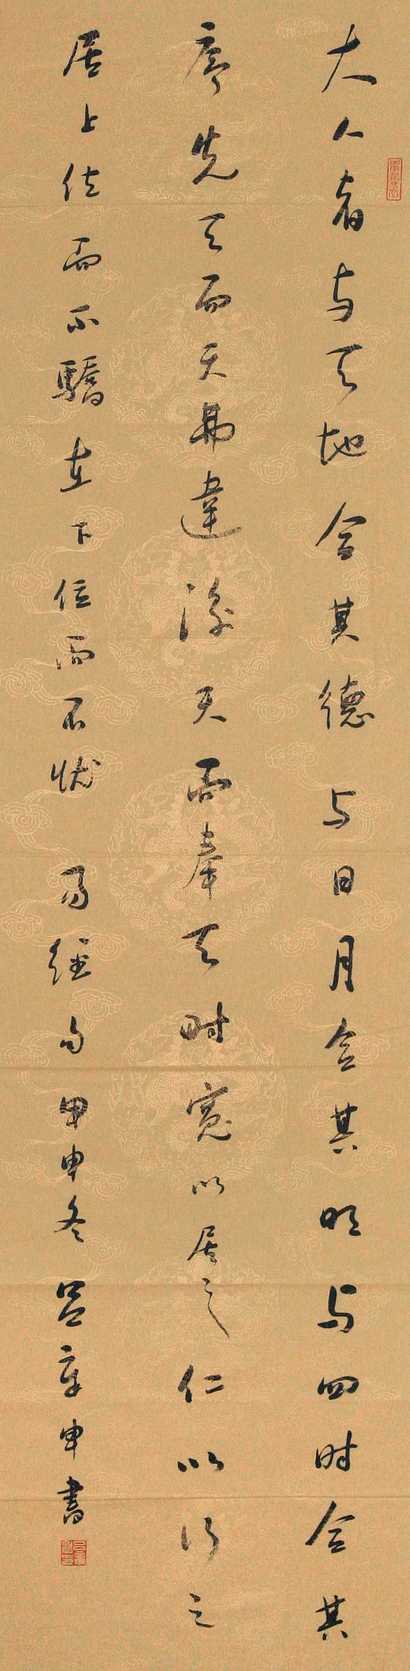 大人者与天地合其德与日月合其明与四时合其
序先天而天弗違後天而奉天时寬以居之仁以行之
居上位而不驕在下位而不忧易经句甲申冬吕章申書